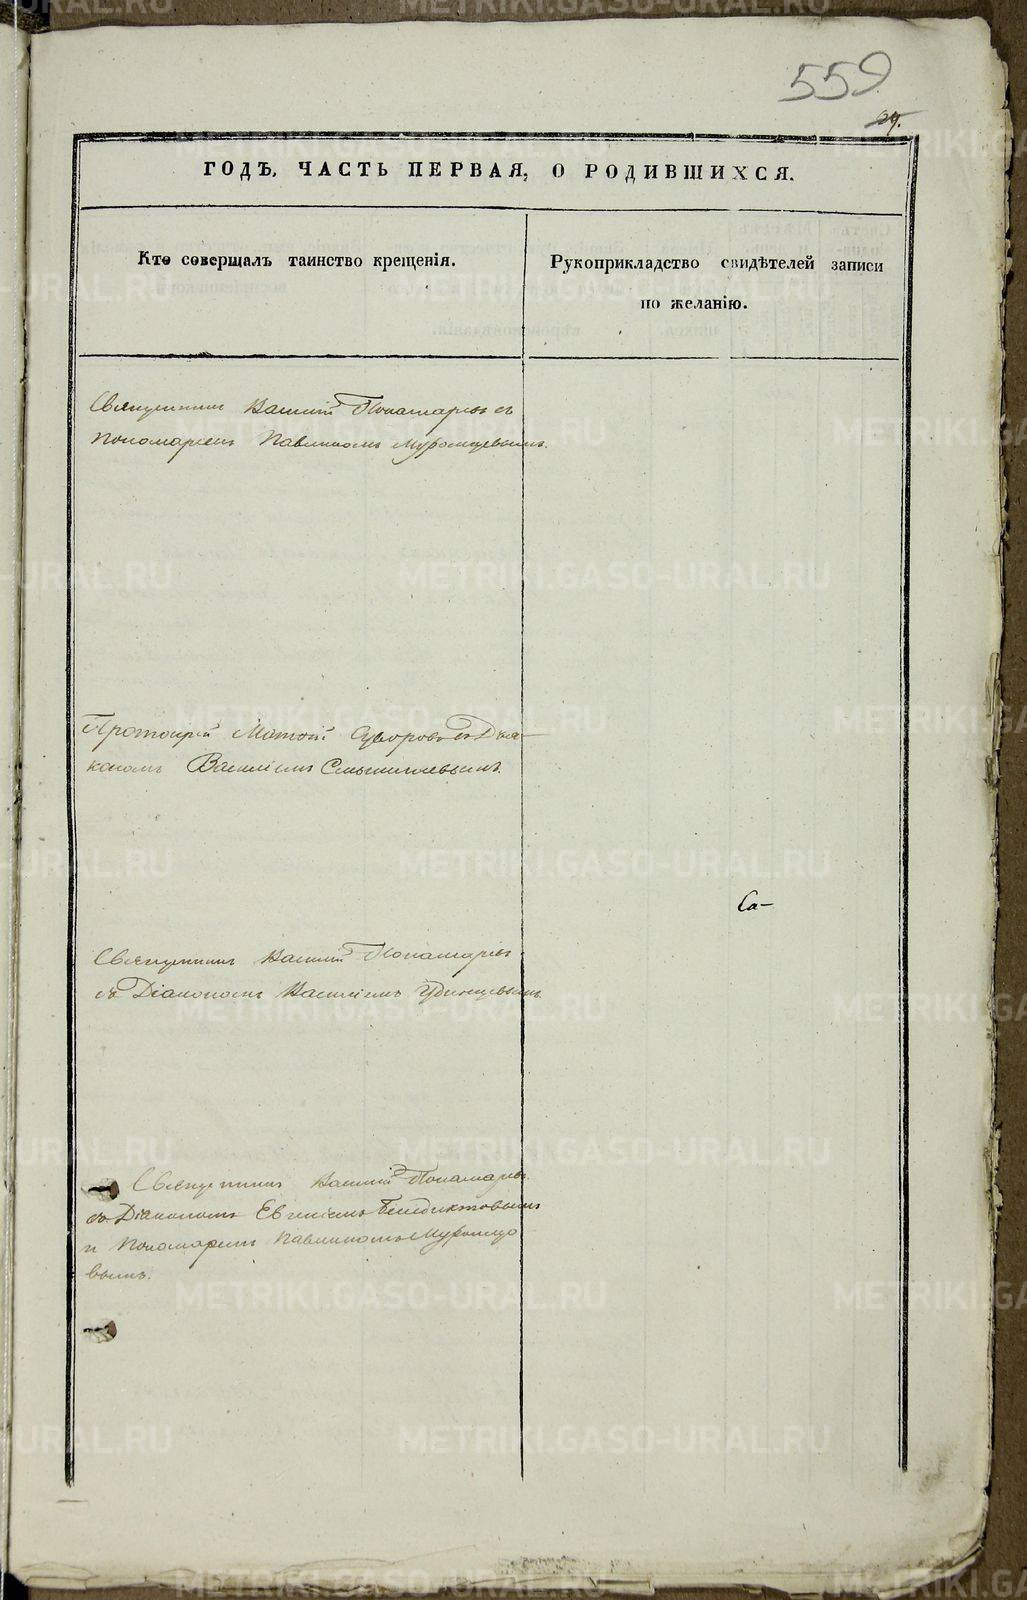 559
29.
ГОДЪ, ЧАСТЬ ПЕРВАЯ, О РОДИВШИХСЯ.
Кто совершалъ таинство крещенія.
Рукоприкладство свидѣтелей записи
по желанію.
Священникъ Василій Понамаревъ съ
пономаремъ Павлиномъ Муромцевымъ.
Протоіерей Матѳій Суворовъ съ Діа-
кономъ Василіемъ
Са-
Священникъ Василій Понамаревъ
съ Діакономъ Василіемъ Удинцевымъ
Священникъ Василій Понамаревъ
съ Діакономъ Евгеніемъ Бенедиктовымъ
и Пономаремъ Павлиномъ Муромцо
вымъ.
METRIKI.GASO-URAL.RU